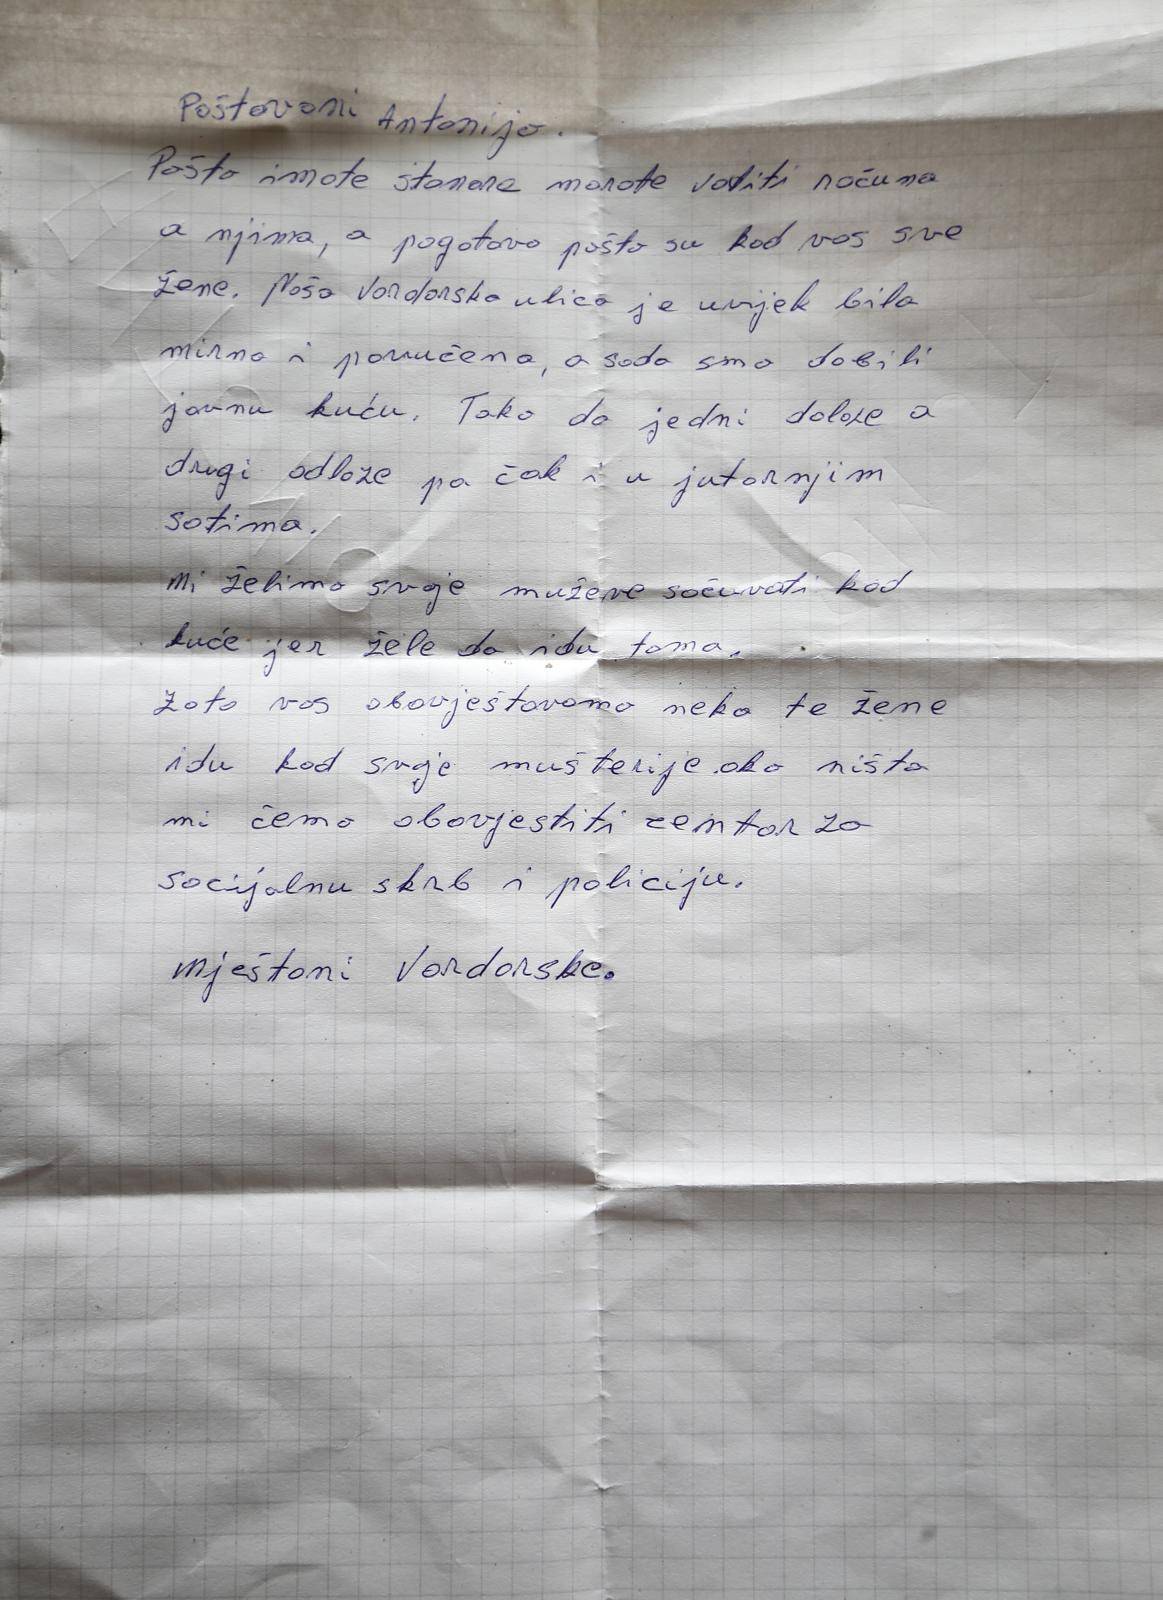 Poštovani Antonijo.
Pošto imate stanare morate voditi računa
o njima, a pogotovo pošto su kod vas sve
žene. Naša Vardarska ulica je uvijek bila
mirna i povučena, a sada smo dobili
javnu kuću. Tako da jedni dolaze a
drugi odlaze pa čak i u jutarnjim
satima.
Mi želimo svoje muževe sačuvati kod
kuće jer žele da idu tamo.
Zato vas obavještavamo neka te žene
idu kod svoje mušterije. ako ništa
mi ćemo obavjestiti centar za
socijalnu skrb i policiju.
Mještani Vardarske.